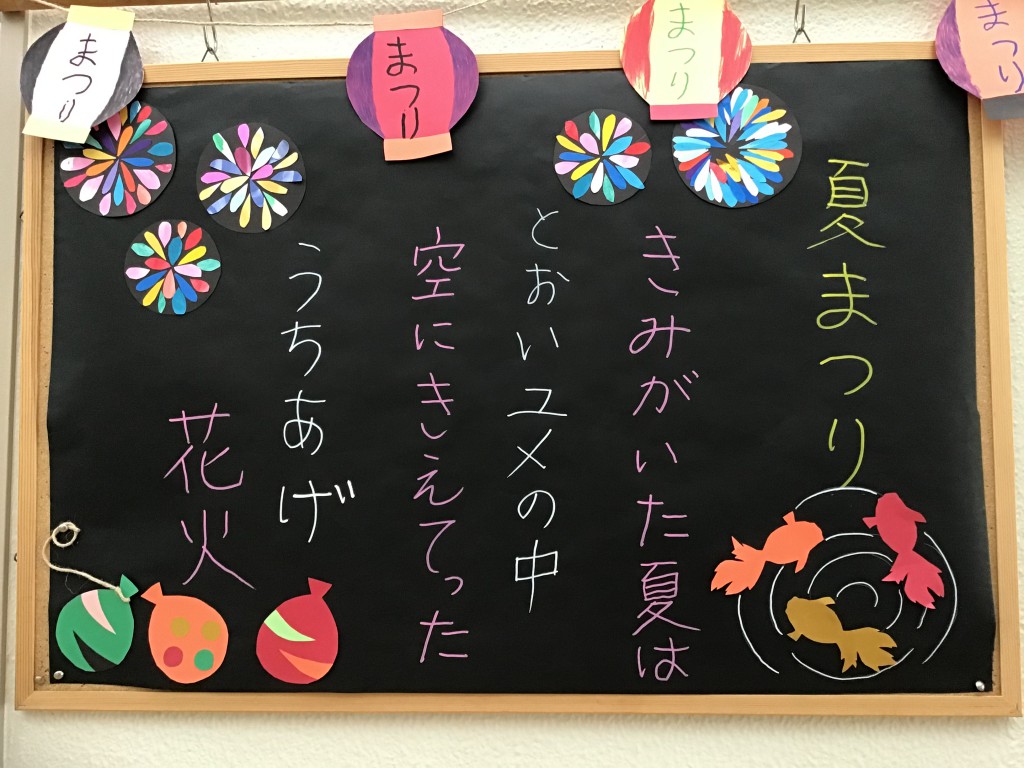 まつり
まつり
まつり
まつり
夏まつり
きみがいた夏は
とおいユメの中
空にきえてった
うちあげ
花火